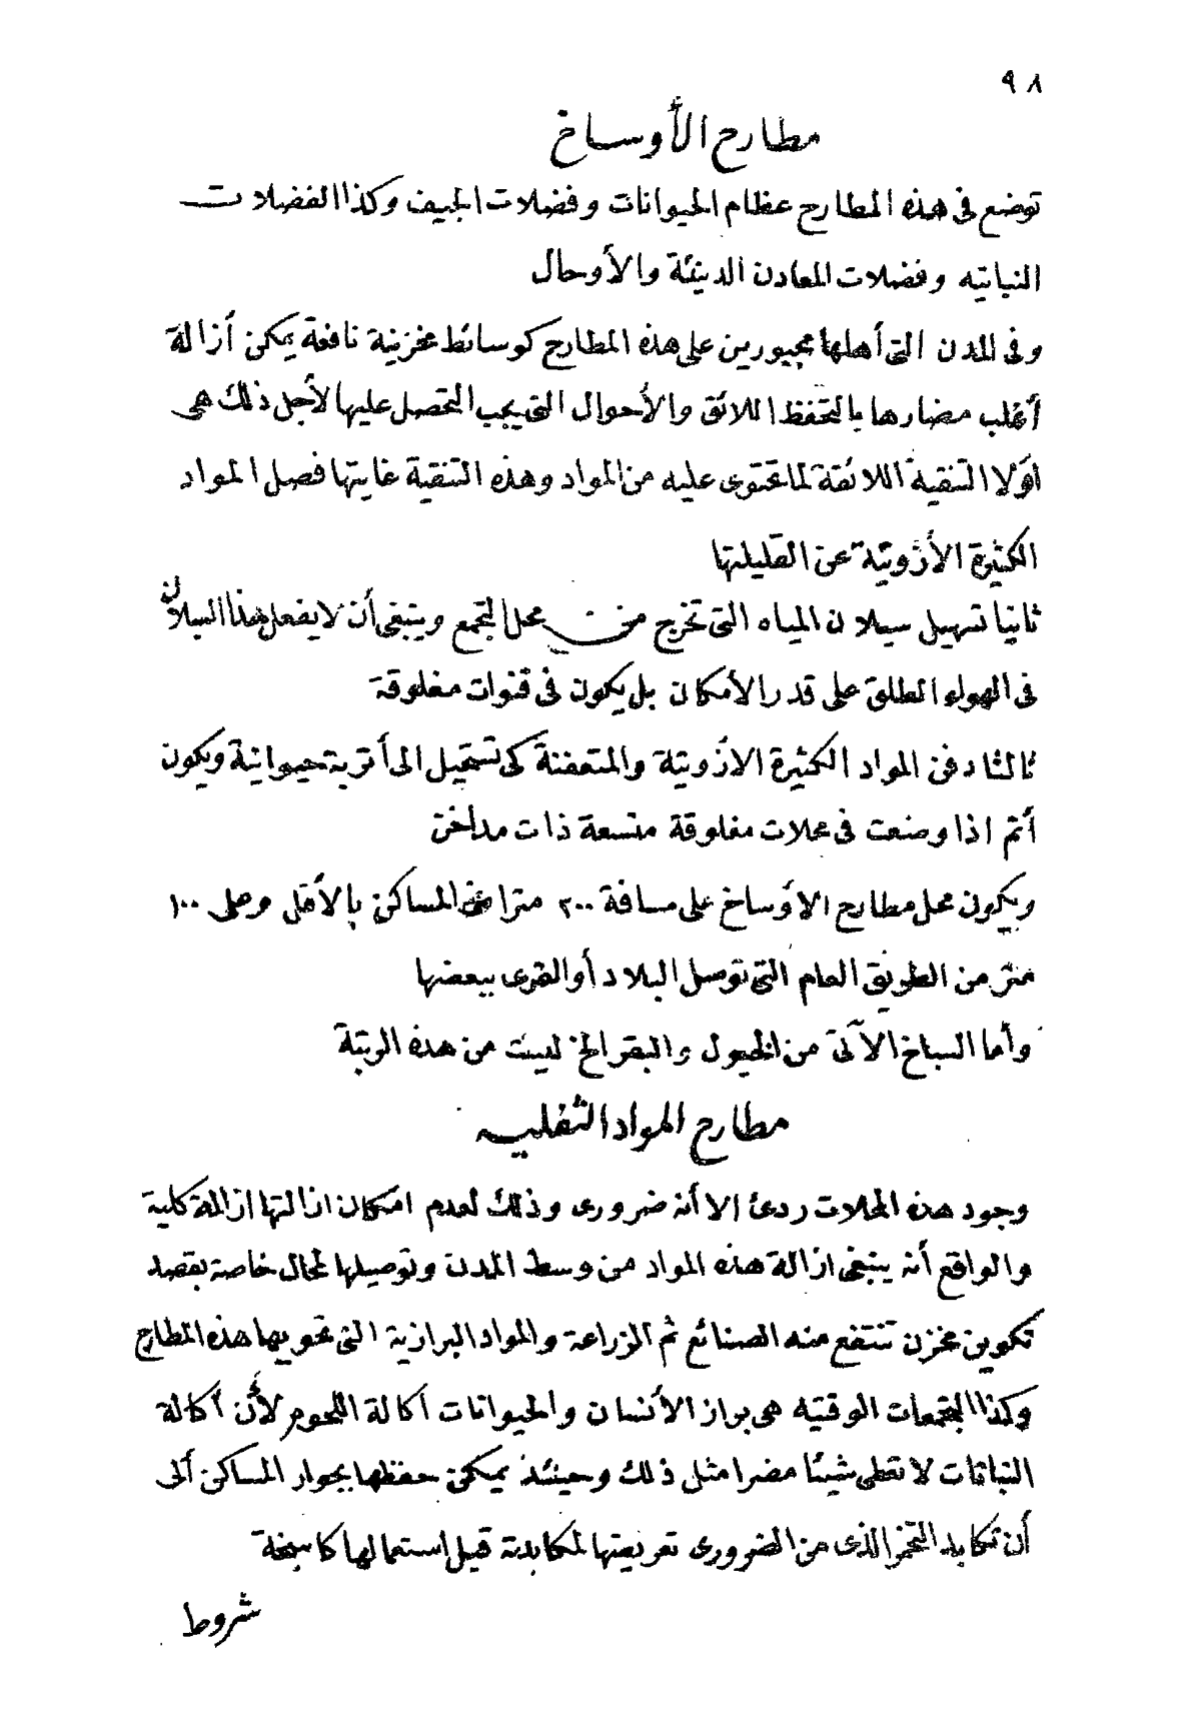 ٩٨
مطارح الأوساخ
توضع فى هذه المطارح عظام الحيوانات وفضلات الجيف وكذا الفضلات
النباتيه وفضلات المعادن الدينئة والأوحال
وفى المدن التى أهلها مجبورين على هذه المطارح كوسائط مخزنية نافعة يمكن أزالة
أغلب مضارها بالتحفظ اللائق والأحوال التى يجب التحصل عليها لأجل ذلك هى
اوّلا التنقية اللائقة لما تحتوى عليه من المواد وهذه التنقية غايتها فصل المواد
الكثيرة الأزوتية عن القليلتها
ثانيا تسهيل سيلان المياه التى تخرج من محل التجمع وينبغى أن لا يفعل هذا السيلان
فى الهواء الطلق على قدر الأمكان بل يكون فى قنوات مغلوقة
ثالثا دفن المواد الكثيرة الازوتية والمتعفنة كى تستحيل الى أتربة حيوانية ويكون
أتم اذا وضعت فى محلات مغلوقة متسعة ذات مداخن
ويكون محل مطارح الأوساخ على مسافة ٢٠٠ مترا من المساكن بالأقل وعلى ١٠٠
متر من الطريق العام التى توصل البلاد أو القرى ببعضها
وأما السباخ الآتى من الخيول والبقر الخ ليست من هذه الرتبة
مطارح المواد الثفليه
وجود هذه المحلات ردئ الا أنه ضرورى وذلك لعدم امكان ازالتها ازالة كلية
والواقع أنه ينبغى ازالة هذه المواد من وسط المدن وتوصيلها لمحال خاصة بقصد
تكوين مخزن تنتفع منه الصنائع ثم الزراعة والمواد البرازية التى تحويها هذه المطارح
وكذا المجتمعات الوقتيه هى براز الأنسان والحيوانات أكالة اللحوم لأن أكالة
النباتات لا تعطى شيئا مضرا مثل ذلك وحينئذ يمكن حفظها بجوار المساكن ألى
أن تكابد التخمر الذى من الضرورى تعريضها لمكابدته قبل استعمالها كاسبخة
شروط